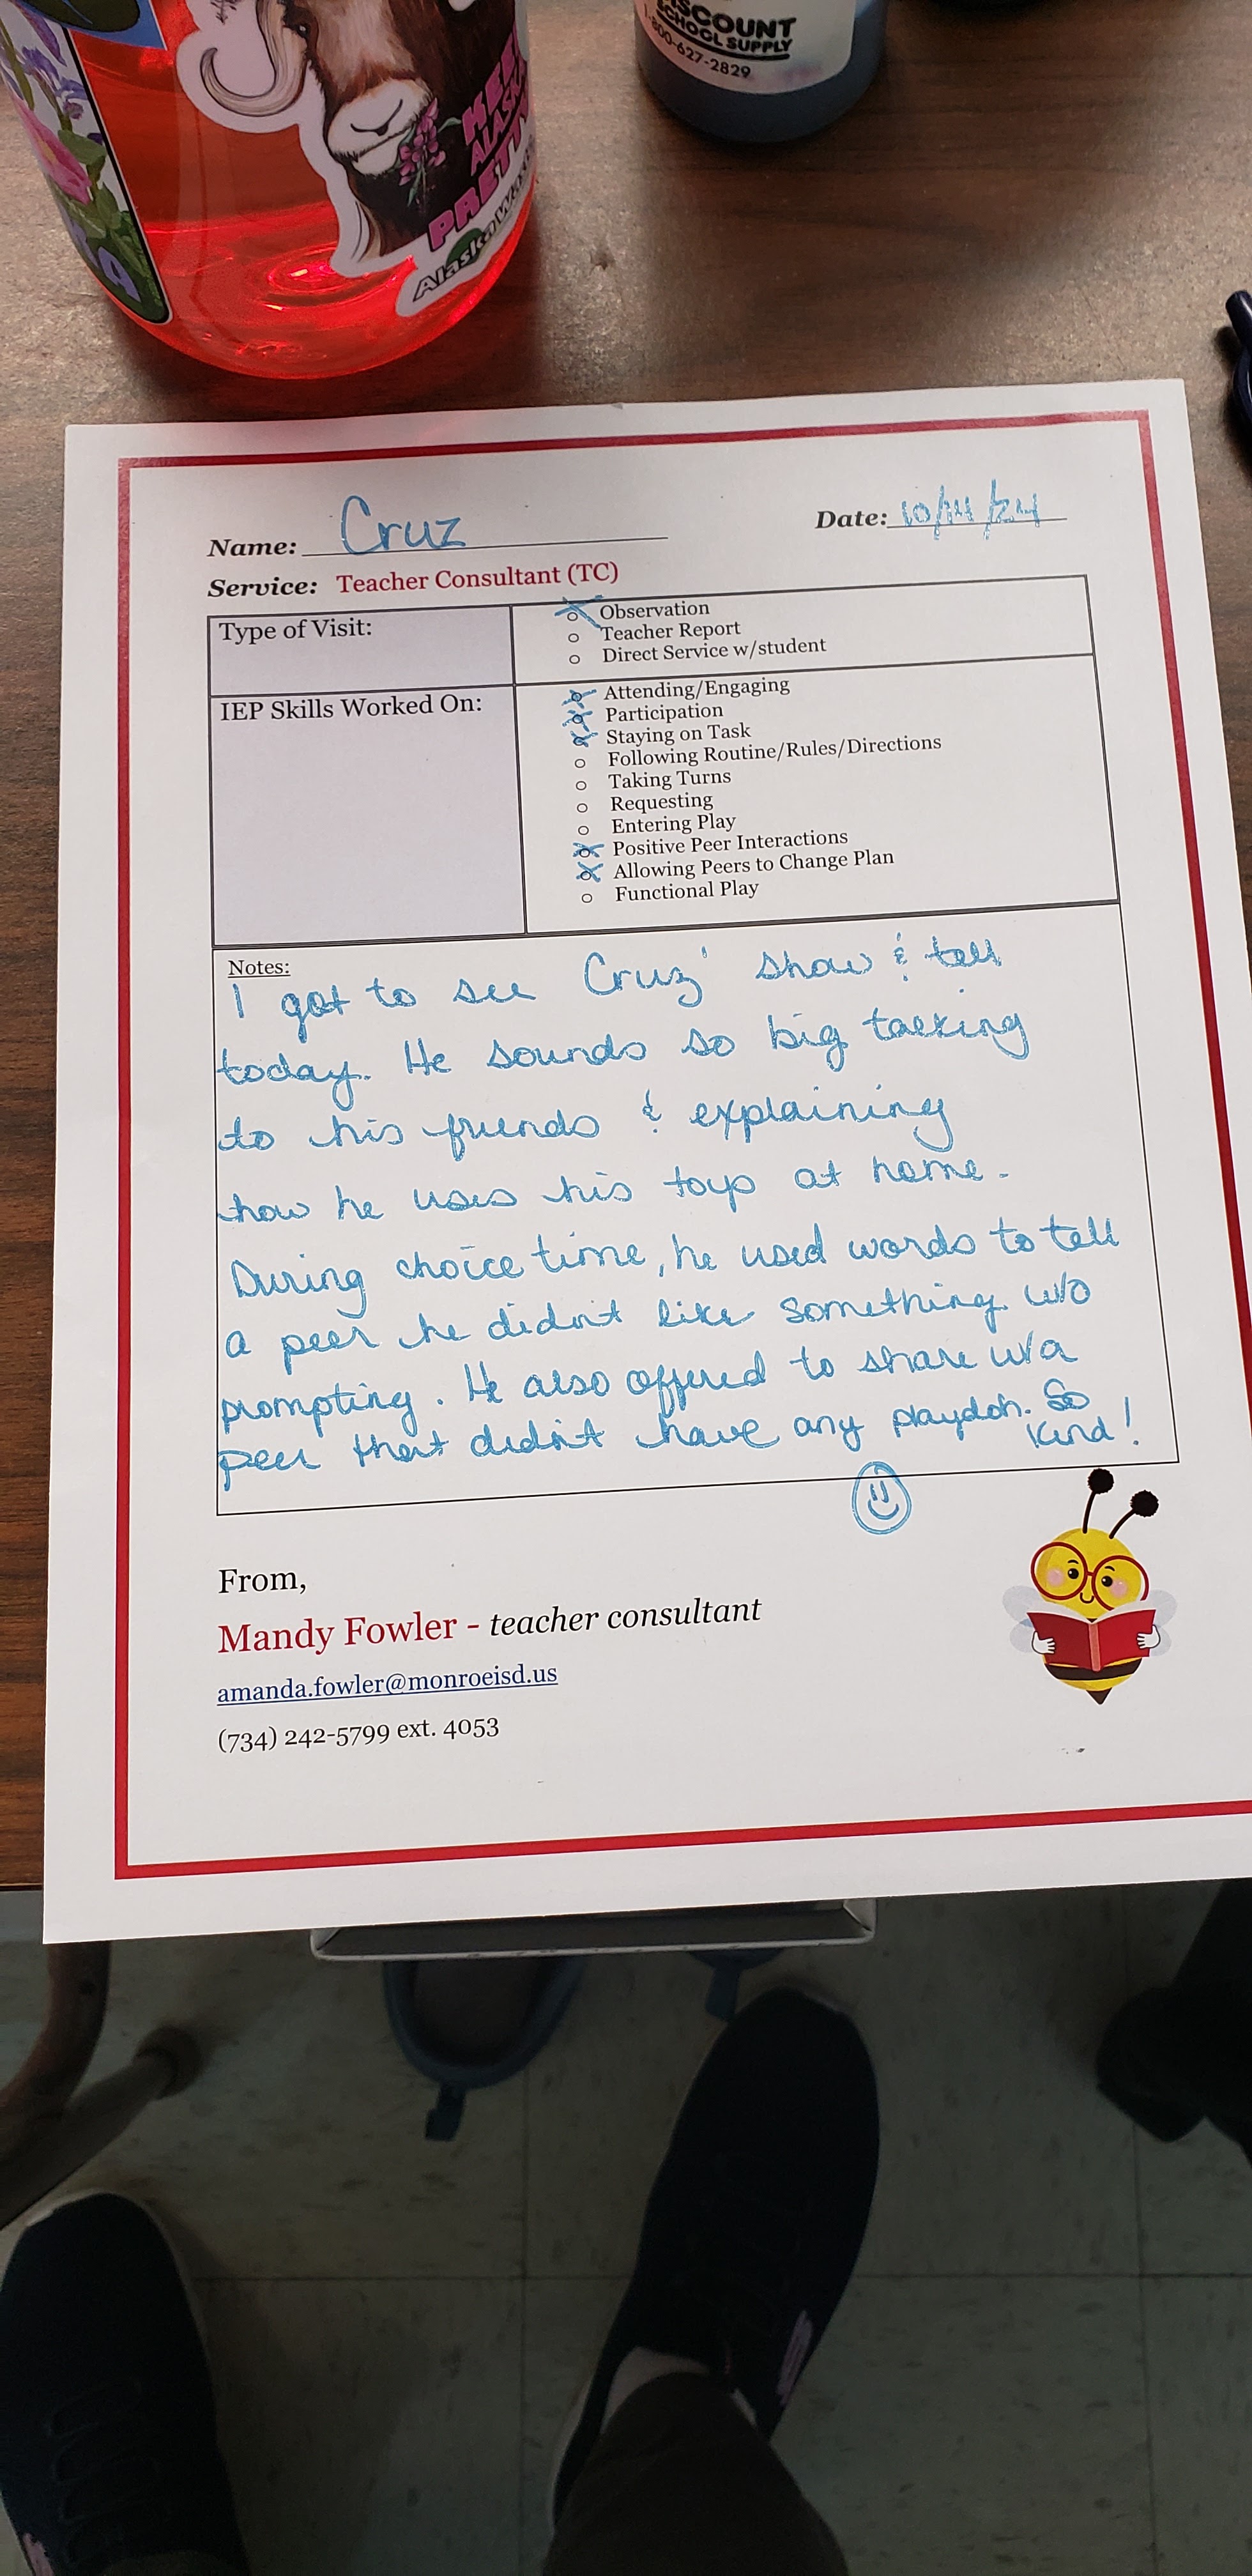 DISCOUNT
SCHOOL SUPPLY
1-800-627-2829
KEEP
ALASKA
PRETTY
Name: Cruz
Date: 10/14/24
Service: Teacher Consultant (TC)
Type of Visit:
o Observation
o Teacher Report
o Direct Service w/student
IEP Skills Worked On:
o Attending/Engaging
o Participation
o Staying on Task
o Following Routine/Rules/Directions
o Taking Turns
o Requesting
o Entering Play
o Positive Peer Interactions
o Allowing Peers to Change Plan
o Functional Play
Notes:
I got to see Cruz' show & tell
today. He sounds so big talking
to his friends & explaining
how he uses his toys at home.
During choice time, he used words to tell
a peer he didn't like something w/o
prompting. He also offered to share w/a
peer that didn't have any playdoh. So
kind!
From,
Mandy Fowler - teacher consultant
amanda.fowler@monroeisd.us
(734) 242-5799 ext. 4053